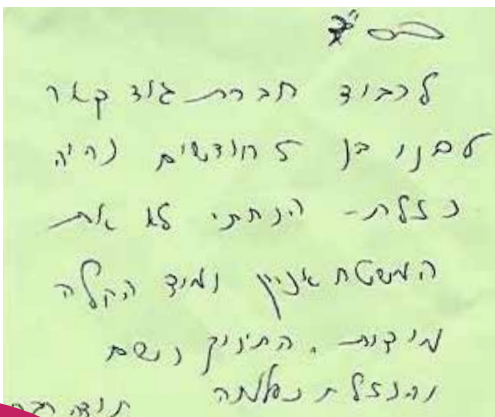 לכבוד חברת גוד קאר
לבנו בן 5 חודשים נהיה
נזלת - הנחתי לו את
המשטח אניק ומיד הקלה
מידית. התינוק נשם
והנזלת נעלמה
תודה רבה